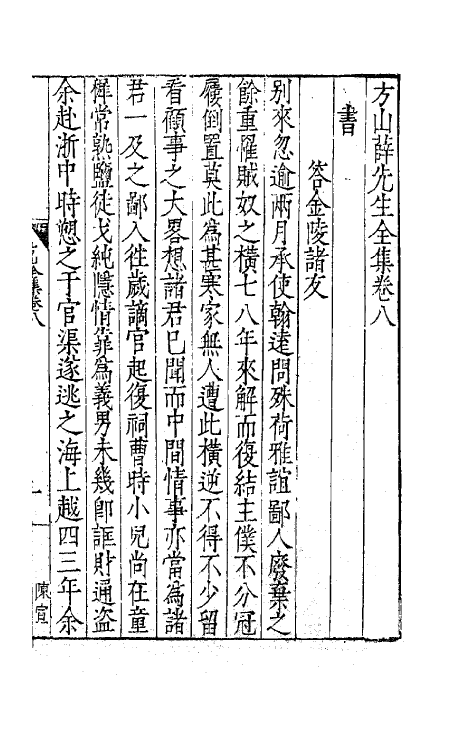 方山薛先生全集卷八
書
答金陵諸友
別來忽逾兩月承使翰遠問殊荷雅誼鄙人廢棄之
餘重罹賊奴之橫七八年來解而復結主僕不分冠
屨倒置莫此為甚寒家無人遭此橫逆不得不少留
看顧事之大畧想諸君已聞而中間情事亦當為諸
君一及之鄙人徃歲謫官起復祠曹時小兒尚在童
穉常熟鹽徒戈純隱情靠為義男未幾即誆財通盜
余赴浙中時愬之于官渠遂逃之海上越四三年余
全集卷八
一
陳宣